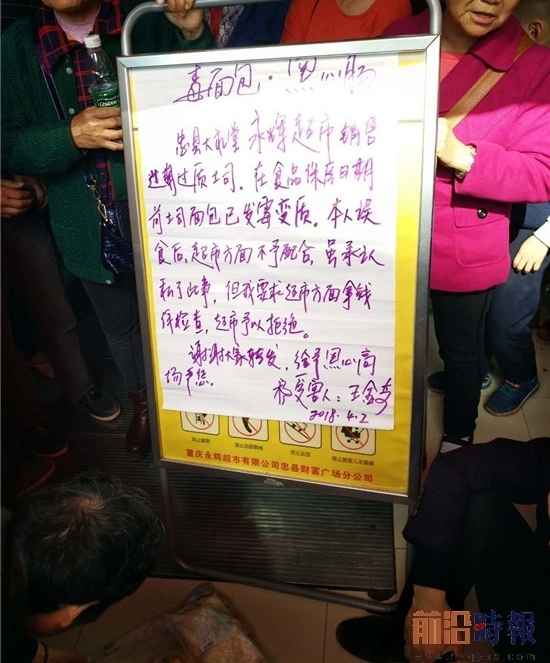 毒面包·黑心肠
忠县大礼堂永辉超市销售
过期过质土司。在食品保质日期
前土司面包已发霉变质。本人误
食后,超市方面不予配合,虽承认
了此事,但我要求超市方面拿钱
体检查,超市予以拒绝。
谢谢大家转发,给予黑心商
场严惩。
受害人:王金
2018.4.2
禁止吸烟
禁止宠物
重庆永辉超市有限公司忠县财富广场分公司
前沿時報